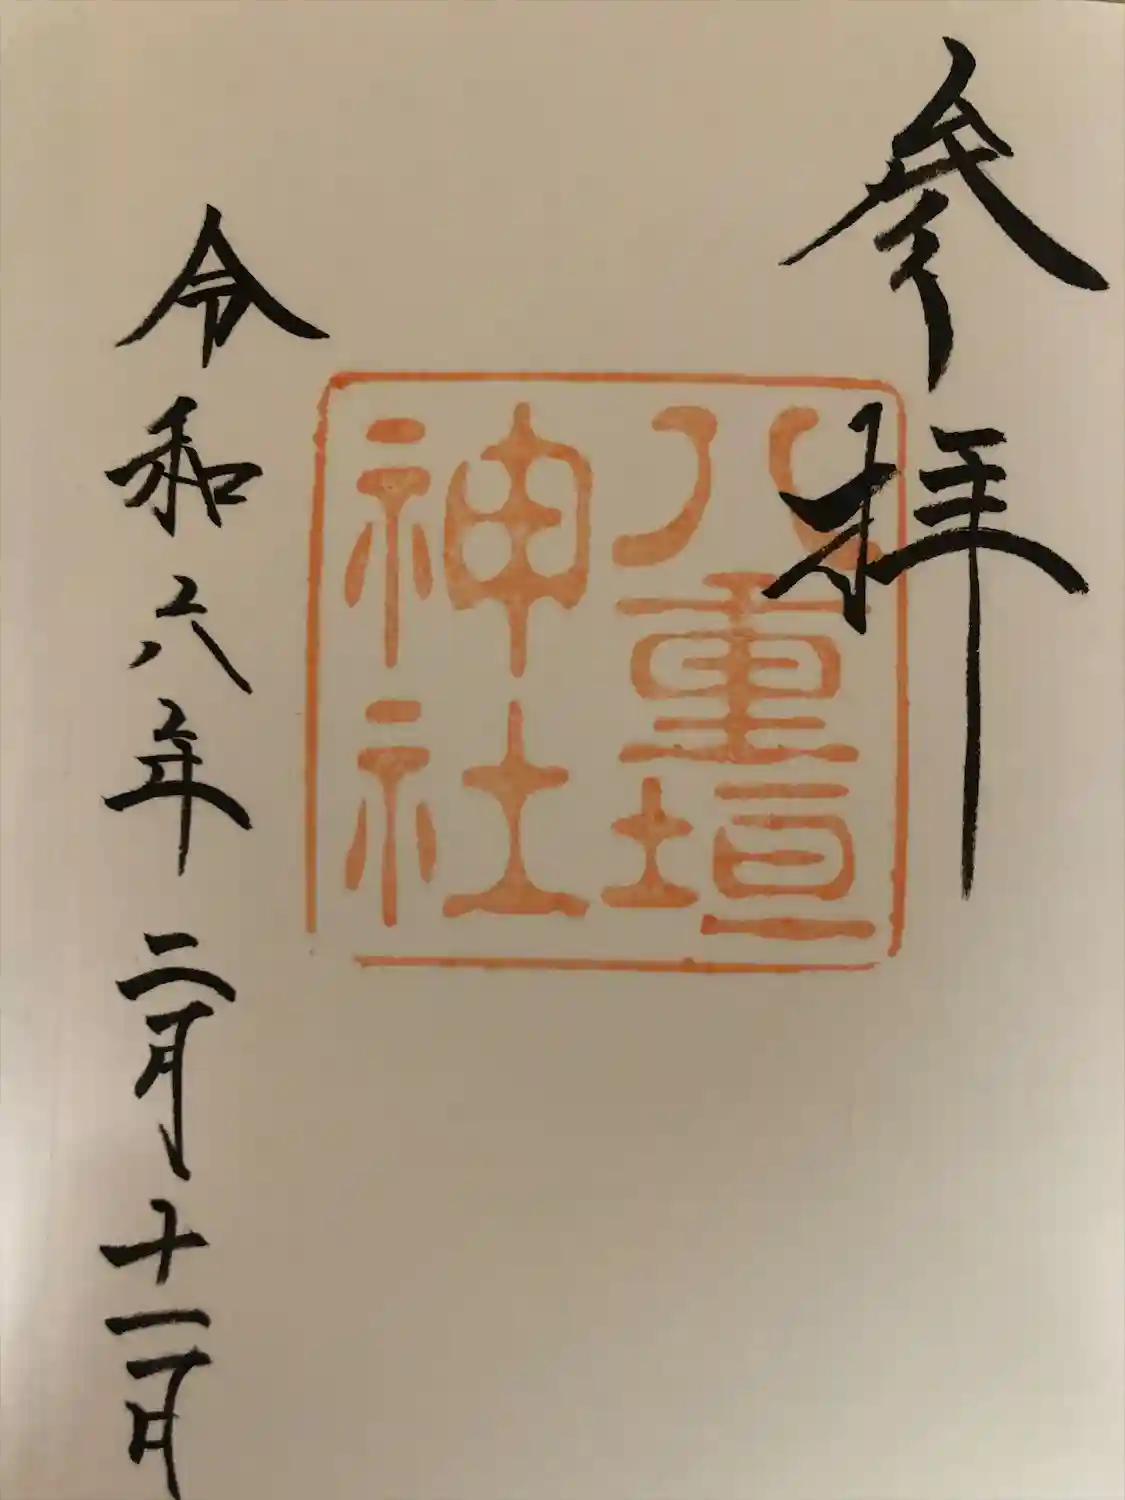 参拝
八重垣
神社
令和六年二月十一日